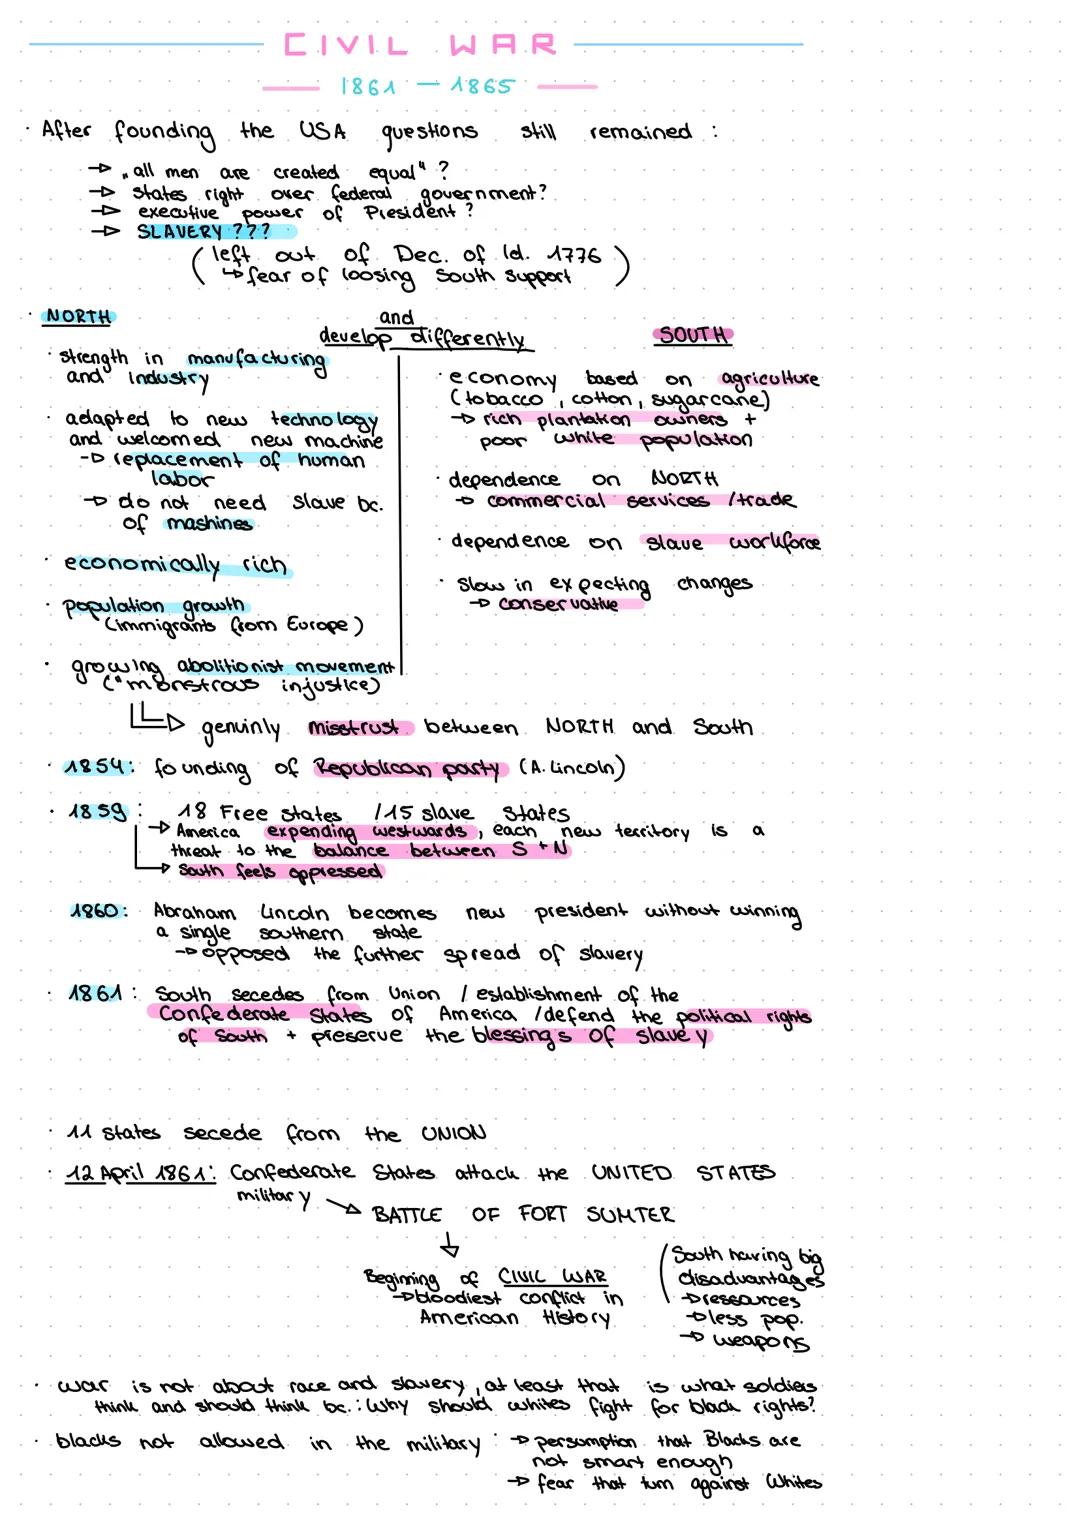 CIVIL WAR
1861 — 1865
· After founding the USA questions still remained :
→ „all men are created equal" ?
→ states right over federal government?
→ executive power of President ?
→ SLAVERY ???
(left out of Dec. of Id. 1776
↳ fear of loosing South support)
· NORTH
and
develop differently
SOUTH
· strength in manufacturing
and industry
· adapted to new technology
and welcomed new machine
→ replacement of human
labor
→ do not need slave bc.
of mashines
· economically rich
· population growth
(immigrants from Europe)
· growing abolitionist movement
("monstrous injustice)
· economy based on agriculture
(tobacco, cotton, sugarcane)
→ rich plantation owners +
poor white population
· dependence on NORTH
→ commercial services /trade
· dependence on slave workforce
· slow in expecting changes
→ conservative
genuinly misstrust between NORTH and South
· 1854: founding of Republican party (A. Lincoln)
· 1859: 18 Free states /15 slave states
→ America expending westwards, each new territory is a
threat to the balance between S + N
→ South feels oppressed
1860: Abraham Lincoln becomes new president without winning
a single southern state
→ opposed the further spread of slavery
· 1861: South secedes from Union / establishment of the
Confederate States of America /defend the political rights
of South + preserve the blessings of slavey
· 11 states secede from the UNION
· 12 April 1861: Confederate States attack the UNITED STATES
military → BATTLE OF FORT SUMTER
Beginning of CIVIL WAR
→ bloodiest conflict in
American History
(South having big
disadvantages
→ ressources
→ less pop.
→ weapons
· war is not about race and slavery, at least that is what soldiers
think and should think bc.: Why should whites fight for black rights?
· blacks not allowed in the military : → persumption that Blacks are
not smart enough
→ fear that turn against Whites